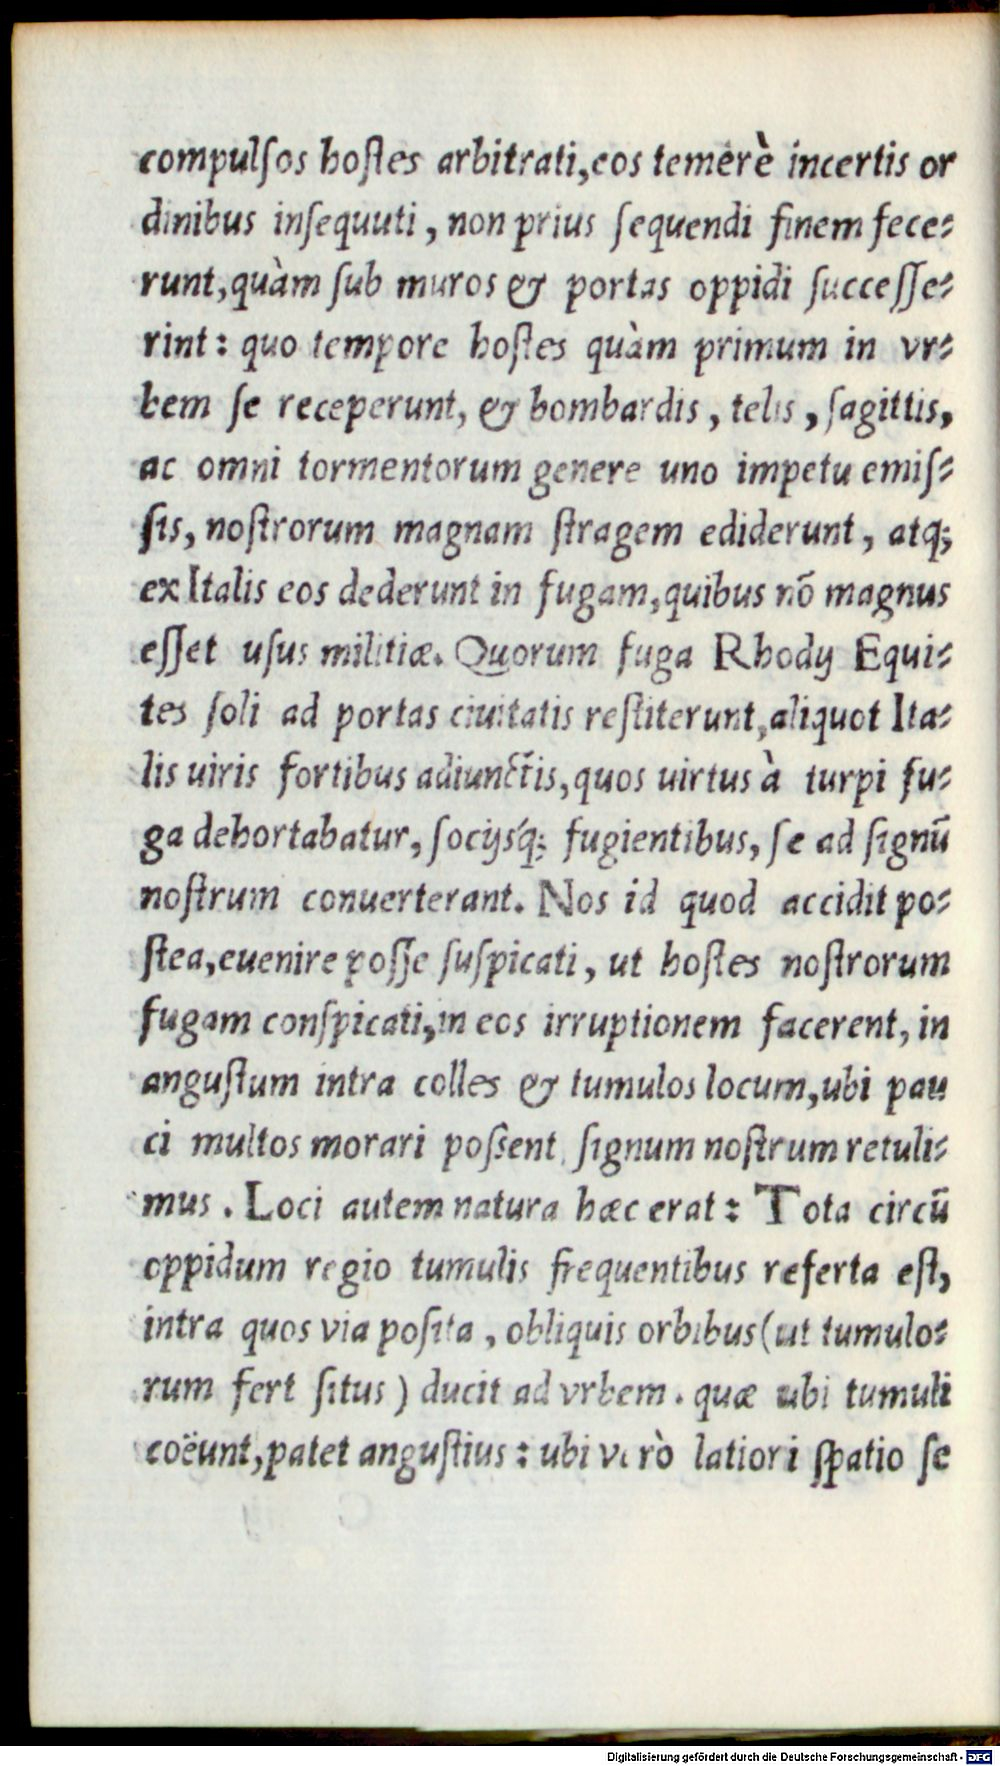 compulſos hoſtes arbitrati,eos temerè incertis or
dinibus inſequuti, non prius ſequendi finem fece-
runt,quàm ſub muros & portas oppidi ſucceſſe-
rint: quo tempore hoſtes quàm primum in vr-
bem ſe receperunt, & bombardis, telis, ſagittis,
ac omni tormentorum genere uno impetu emiſ-
ſis, noſtrorum magnam ſtragem ediderunt, atq;
ex Italis eos dederunt in fugam,quibus nō magnus
eſſet uſus militiæ. Quorum fuga Rhodij Equi-
tes ſoli ad portas ciuitatis reſtiterunt,aliquot Ita-
lis uiris fortibus adiunctis,quos uirtus à turpi fu-
ga dehortabatur, ſocijsq́; fugientibus, ſe ad ſignū
noſtrum conuerterant. Nos id quod accidit po-
ſtea,euenire poſſe ſuſpicati, ut hoſtes noſtrorum
fugam conſpicati,in eos irruptionem facerent, in
anguſtum intra colles & tumulos locum,ubi pau
ci multos morari poſsent ſignum noſtrum retuli-
mus. Loci autem natura hæc erat: Tota circū
oppidum regio tumulis frequentibus referta eſt,
intra quos via poſita, obliquis orbibus (ut tumulo-
rum fert ſitus) ducit ad vrbem. quæ ubi tumuli
coëunt,patet anguſtius: ubi verò latiori ſpatio ſe
Digitalisierung gefördert durch die Deutsche Forschungsgemeinschaft - DFG